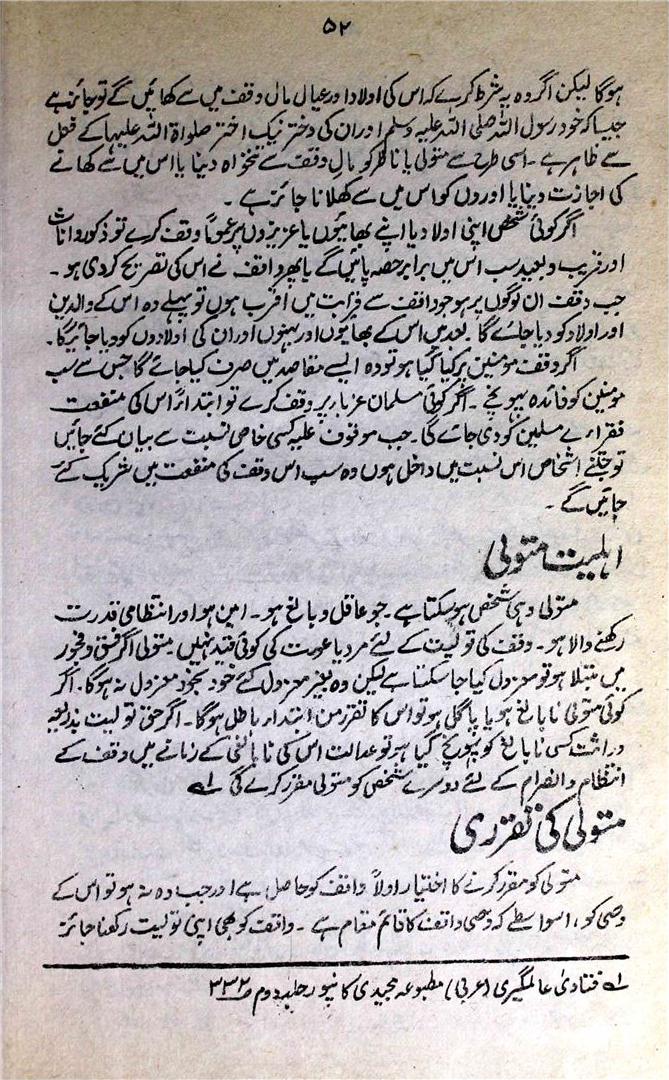 ۵۲
ہوگا لیکن اگر وہ یہ شرط کرے کہ اس کی اولاد اور عیال مال وقف میں سے کھائیں گے تو جائز ہے
جیسا کہ خود رسول اللہ صلی اللہ علیہ وسلم اور ان کی دختر نیک اختر صلواۃ اللہ علیہا کے فعل
سے ظاہر ہے۔ اسی طرح سے متولی یا ناظر کو مال وقف سے تنخواہ دینا یا اس میں سے کھانے
کی اجازت دینا یا اوروں کو اس میں سے کھلانا جائز ہے۔
اگر کوئی شخص اپنی اولاد یا اپنے بھائیوں یا عزیزوں پر عموماً وقف کرے تو ذکور و اناث
اور قریب و بعید سب اس میں برابر حصہ پائیں گے یا پھر واقف نے اس کی تصریح کر دی ہو۔
جب وقف ان لوگوں پر ہو جو واقف سے قرابت میں اقرب ہوں تو پہلے وہ اس کے والدین
اور اولاد کو دیا جائے گا۔ بعد میں اس کے بھائیوں اور بہنوں اور ان کی اولادوں کو دیا جائیگا۔
اگر وقف مومنین پر کیا گیا ہو تو وہ ایسے مقاصد میں صرف کیا جائے گا جس سے سب
مومنین کو فائدہ پہونچے۔ اگر کوئی مسلمان غرباء پر وقف کرے تو ابتداءً اس کی منفعت
فقرائے مسلمین کو دی جائے گی۔ جب موقوف علیہ کسی خاص نسبت سے بیان کئے جائیں
تو جتنے اشخاص اس نسبت میں داخل ہوں وہ سب اس وقف کی منفعت میں شریک کئے
جائیں گے۔
اہلیت متولی
متولی وہی شخص ہو سکتا ہے۔ جو عاقل و بالغ ہو۔ امین ہو اور انتظامی قدرت
رکھنے والا ہو۔ وقف کی تولیت کے لئے مرد یا عورت کی کوئی قید نہیں۔ متولی اگر فسق و فجور
میں مبتلا ہو تو معزول کیا جا سکتا ہے لیکن وہ بغیر معزول کئے خود بخود معزول نہ ہوگا۔ اگر
کوئی متولی نابالغ ہو یا پاگل ہو تو اس کا تقرر من ابتداء باطل ہوگا۔ اگر حق تولیت بذریعہ
وراثت کسی نابالغ کو پہونچ گیا ہو تو عدالت اس کی نابالغی کے زمانے میں وقف کے
انتظام و انصرام کے لئے دوسرے شخص کو متولی مقرر کرے گی ۱؎
متولی کی تقرری
متولی کو مقرر کرنے کا اختیار اولاً واقف کو حاصل ہے اور جب وہ نہ ہو تو اس کے
وصی کو، اسواسطے کہ وصی واقف کا قائم مقام ہے۔ واقف کو بھی اپنی تولیت رکھنا جائز
۱؎ فتاویٰ عالمگیری (عربی) مطبوعہ مجیدی کانپور جلد دوم ص۳۳۲